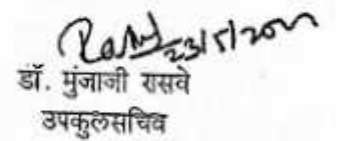 23/5/2011
डॉ. मुंजाजी रासवे
उपकुलसचिव